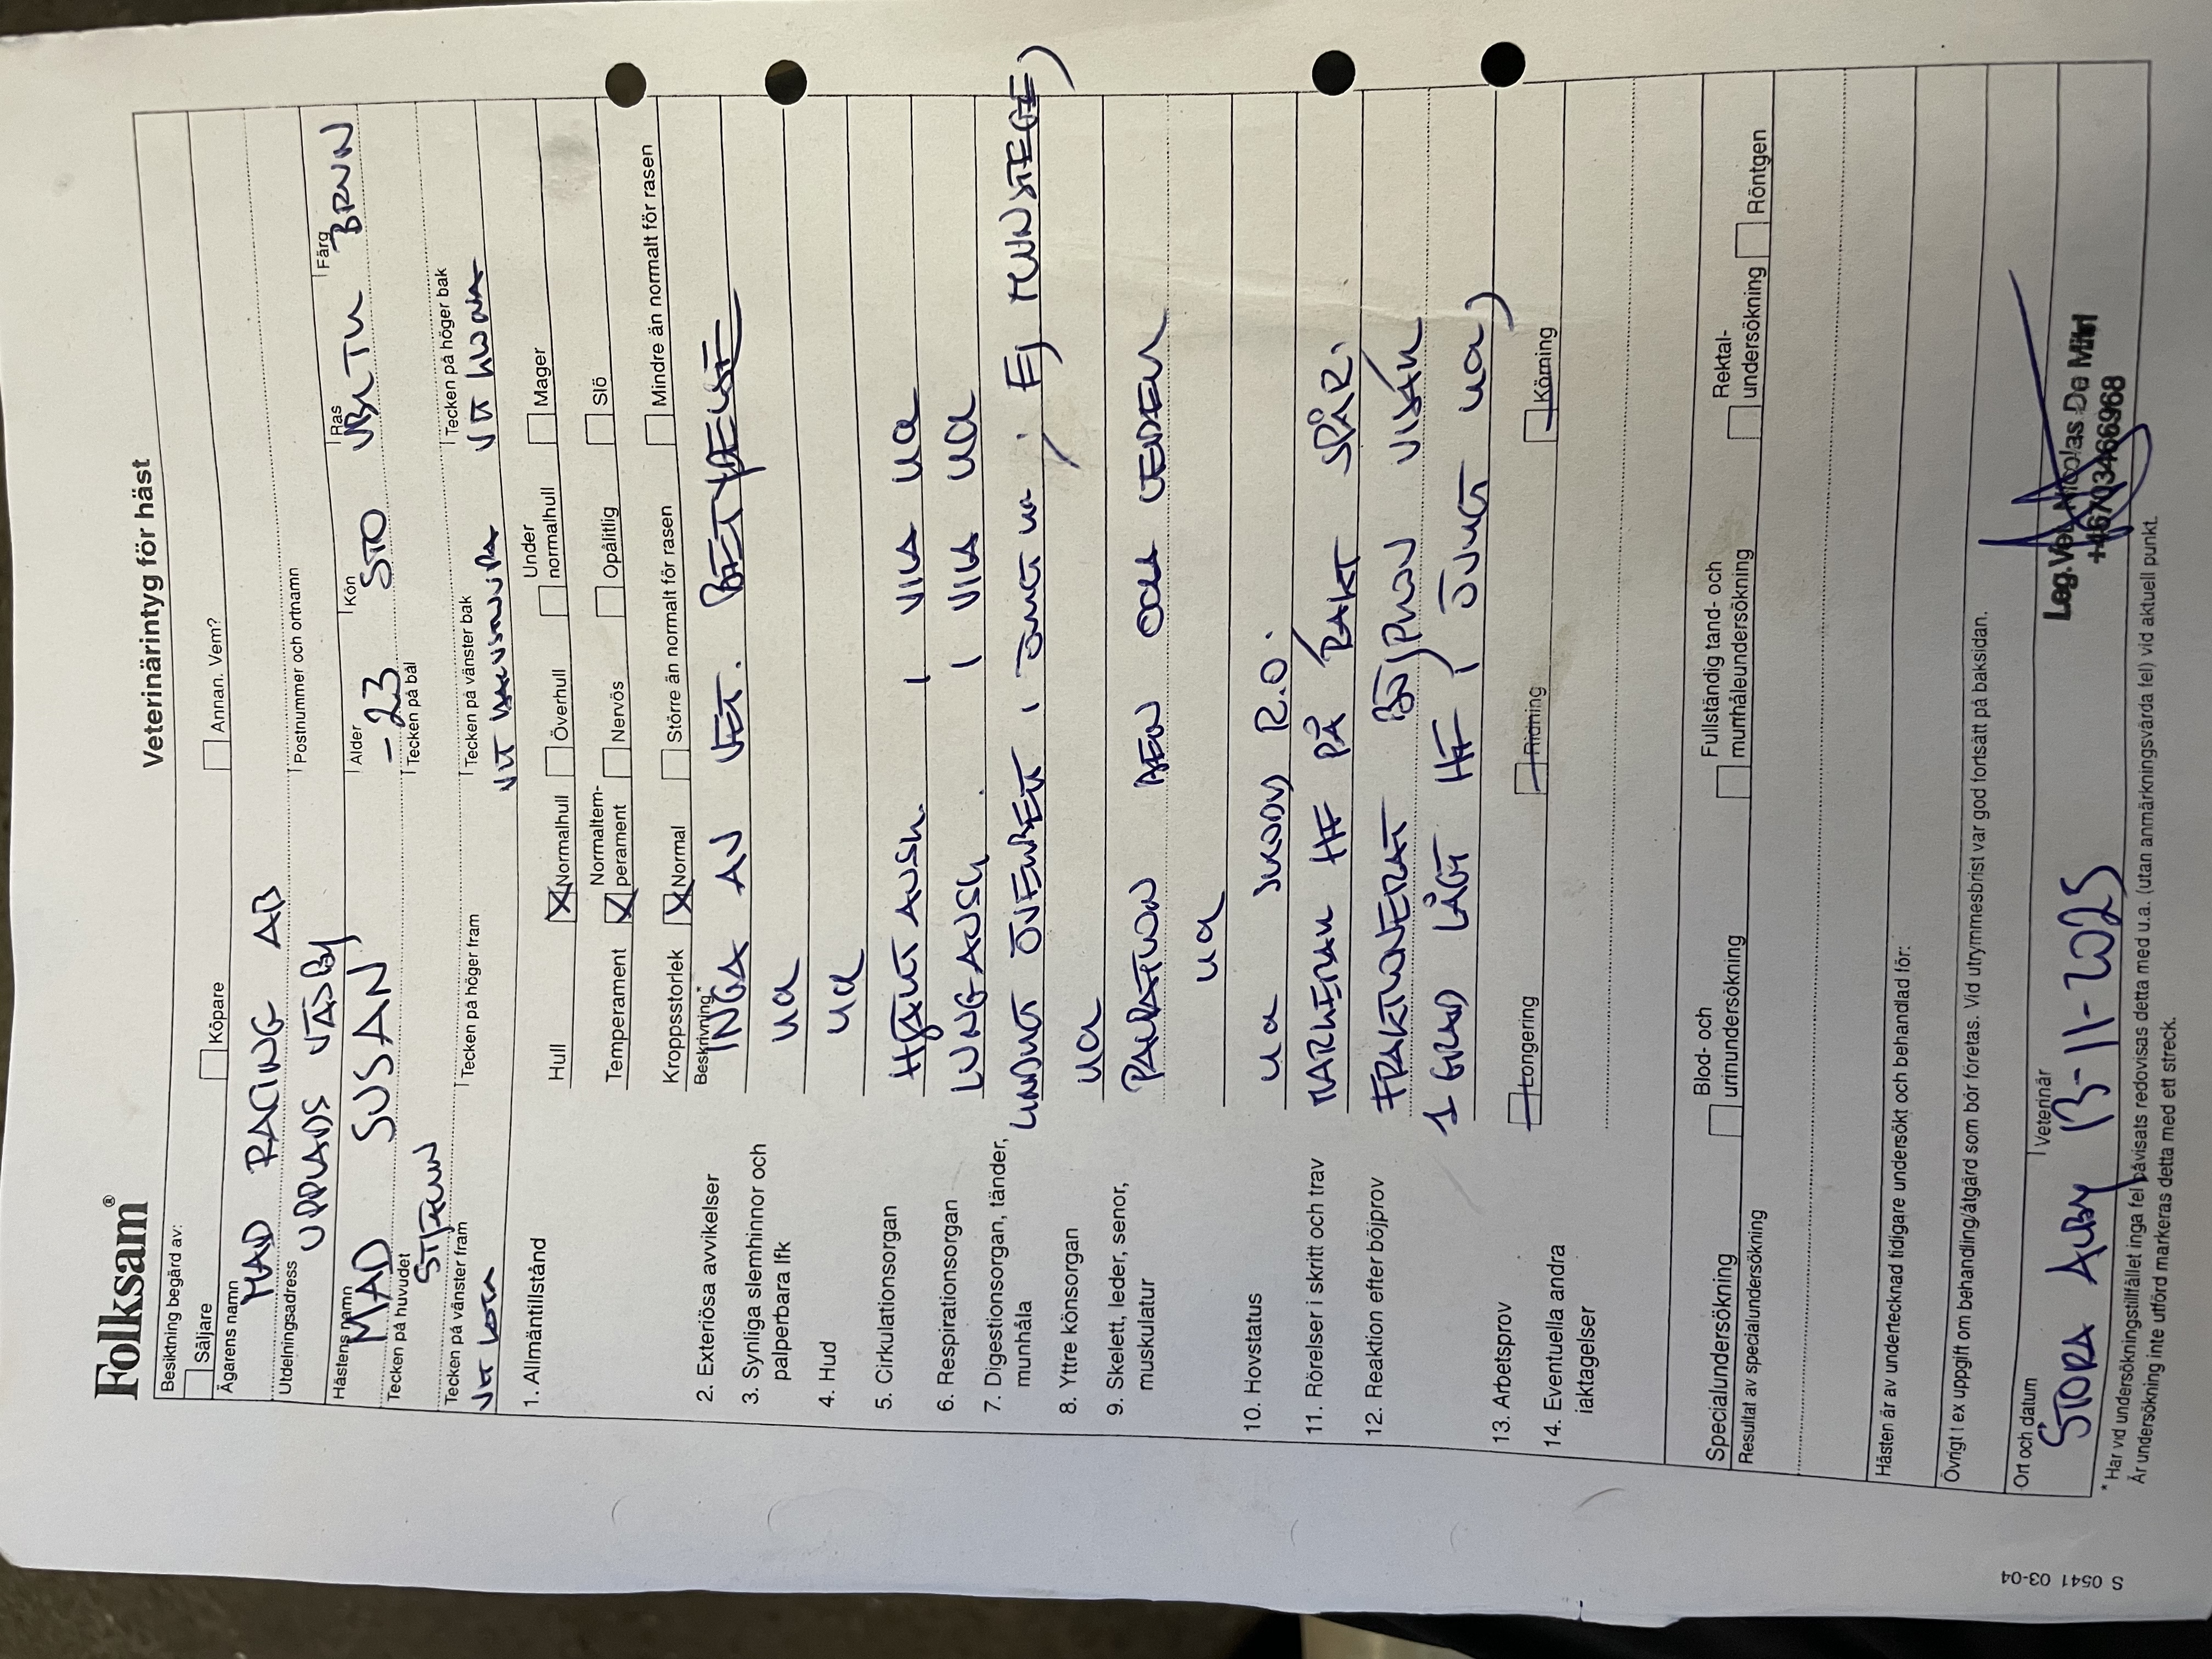 Folksam®
Veterinärintyg för häst
Besiktning begärd av:
Säljare Köpare Annan. Vem?
Ägarens namn
MAD RACING AB
Utdelningsadress Postnummer och ortnamn
UPPLANDS VÄSBY
Hästens namn Ålder Kön Ras Färg
MAD SUSAN -23 STO BRUN
Tecken på huvudet Tecken på bål
STJÄRN
Tecken på vänster fram Tecken på höger fram Tecken på vänster bak Tecken på höger bak
1. Allmäntillstånd Hull X Normalhull Överhull Under normalhull Mager
Temperament X Normaltem-perament Nervös Opålitlig Slö
Kroppsstorlek X Normal Större än normalt för rasen Mindre än normalt för rasen
Beskrivning*
2. Exteriösa avvikelser INGA AV VET. BETYDELSE
3. Synliga slemhinnor och palperbara lfk ua
4. Hud ua
5. Cirkulationsorgan HJÄRT AUSK. I VILA ua
6. Respirationsorgan LUNG AUSK. I VILA ua
7. Digestionsorgan, tänder, munhåla LINDRIGT ÖVERBETT, i övrigt ua. (EJ MUNSTEGE)
8. Yttre könsorgan ua
9. Skelett, leder, senor, muskulatur PALPATION BEN OCH LEDER
ua
10. Hovstatus ua SKODD R.O.
11. Rörelser i skritt och trav MARKERAR HF PÅ RAKT SPÅR.
12. Reaktion efter böjprov FRAKTIONERAT BÖJPROV VISAR
1 GRAD LÅGT HF, ÖVRIGT ua)
13. Arbetsprov Longering Ridning Körning
14. Eventuella andra iaktagelser
Specialundersökning Blod- och urinundersökning Fullständig tand- och munhåleundersökning Rektal-undersökning Röntgen
Resultat av specialundersökning
Hästen är av undertecknad tidigare undersökt och behandlad för:
Övrigt t ex uppgift om behandling/åtgärd som bör företas. Vid utrymmesbrist var god fortsätt på baksidan.
Ort och datum Veterinär
STORA AUBY 13-11-2025
Leg. Vet. Nicolas De Mitri
+46703466968
* Har vid undersökningstillfället inga fel påvisats redovisas detta med u.a. (utan anmärkningsvärda fel) vid aktuell punkt.
Är undersökning inte utförd markeras detta med ett streck.
S 0541 03-04